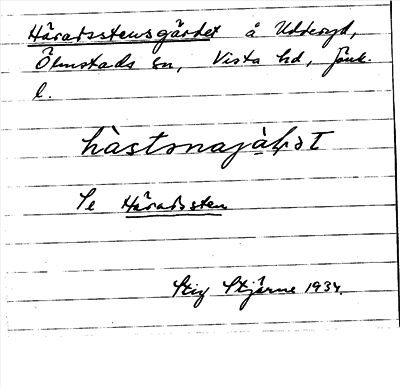 Häradsstensgärdet å Udderyd,
Ölmstads sn, Vista hd, Jönk.
l.
Se Häradssten
Stig Stjärne 1934.